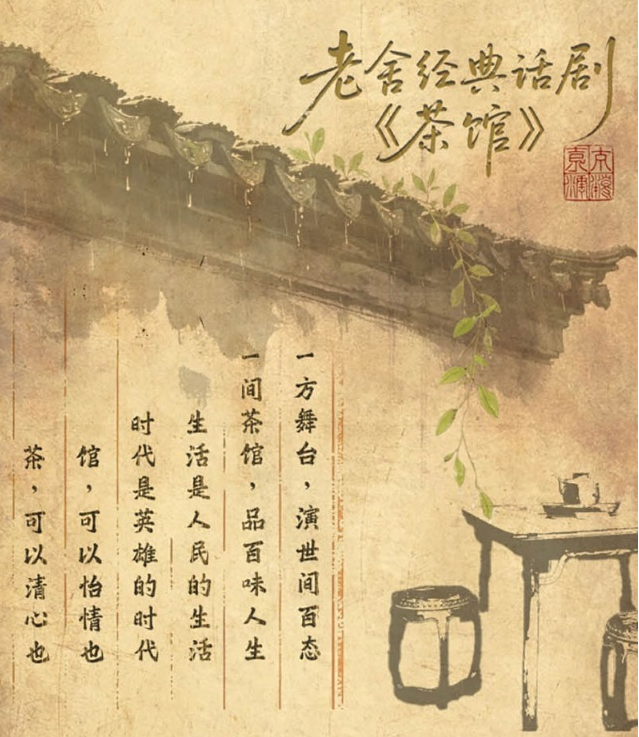 老舍经典话剧
《茶馆》
一方舞台，演世间百态
一间茶馆，品百味人生
生活是人民的生活
时代是英雄的时代
馆，可以怡情也
茶，可以清心也